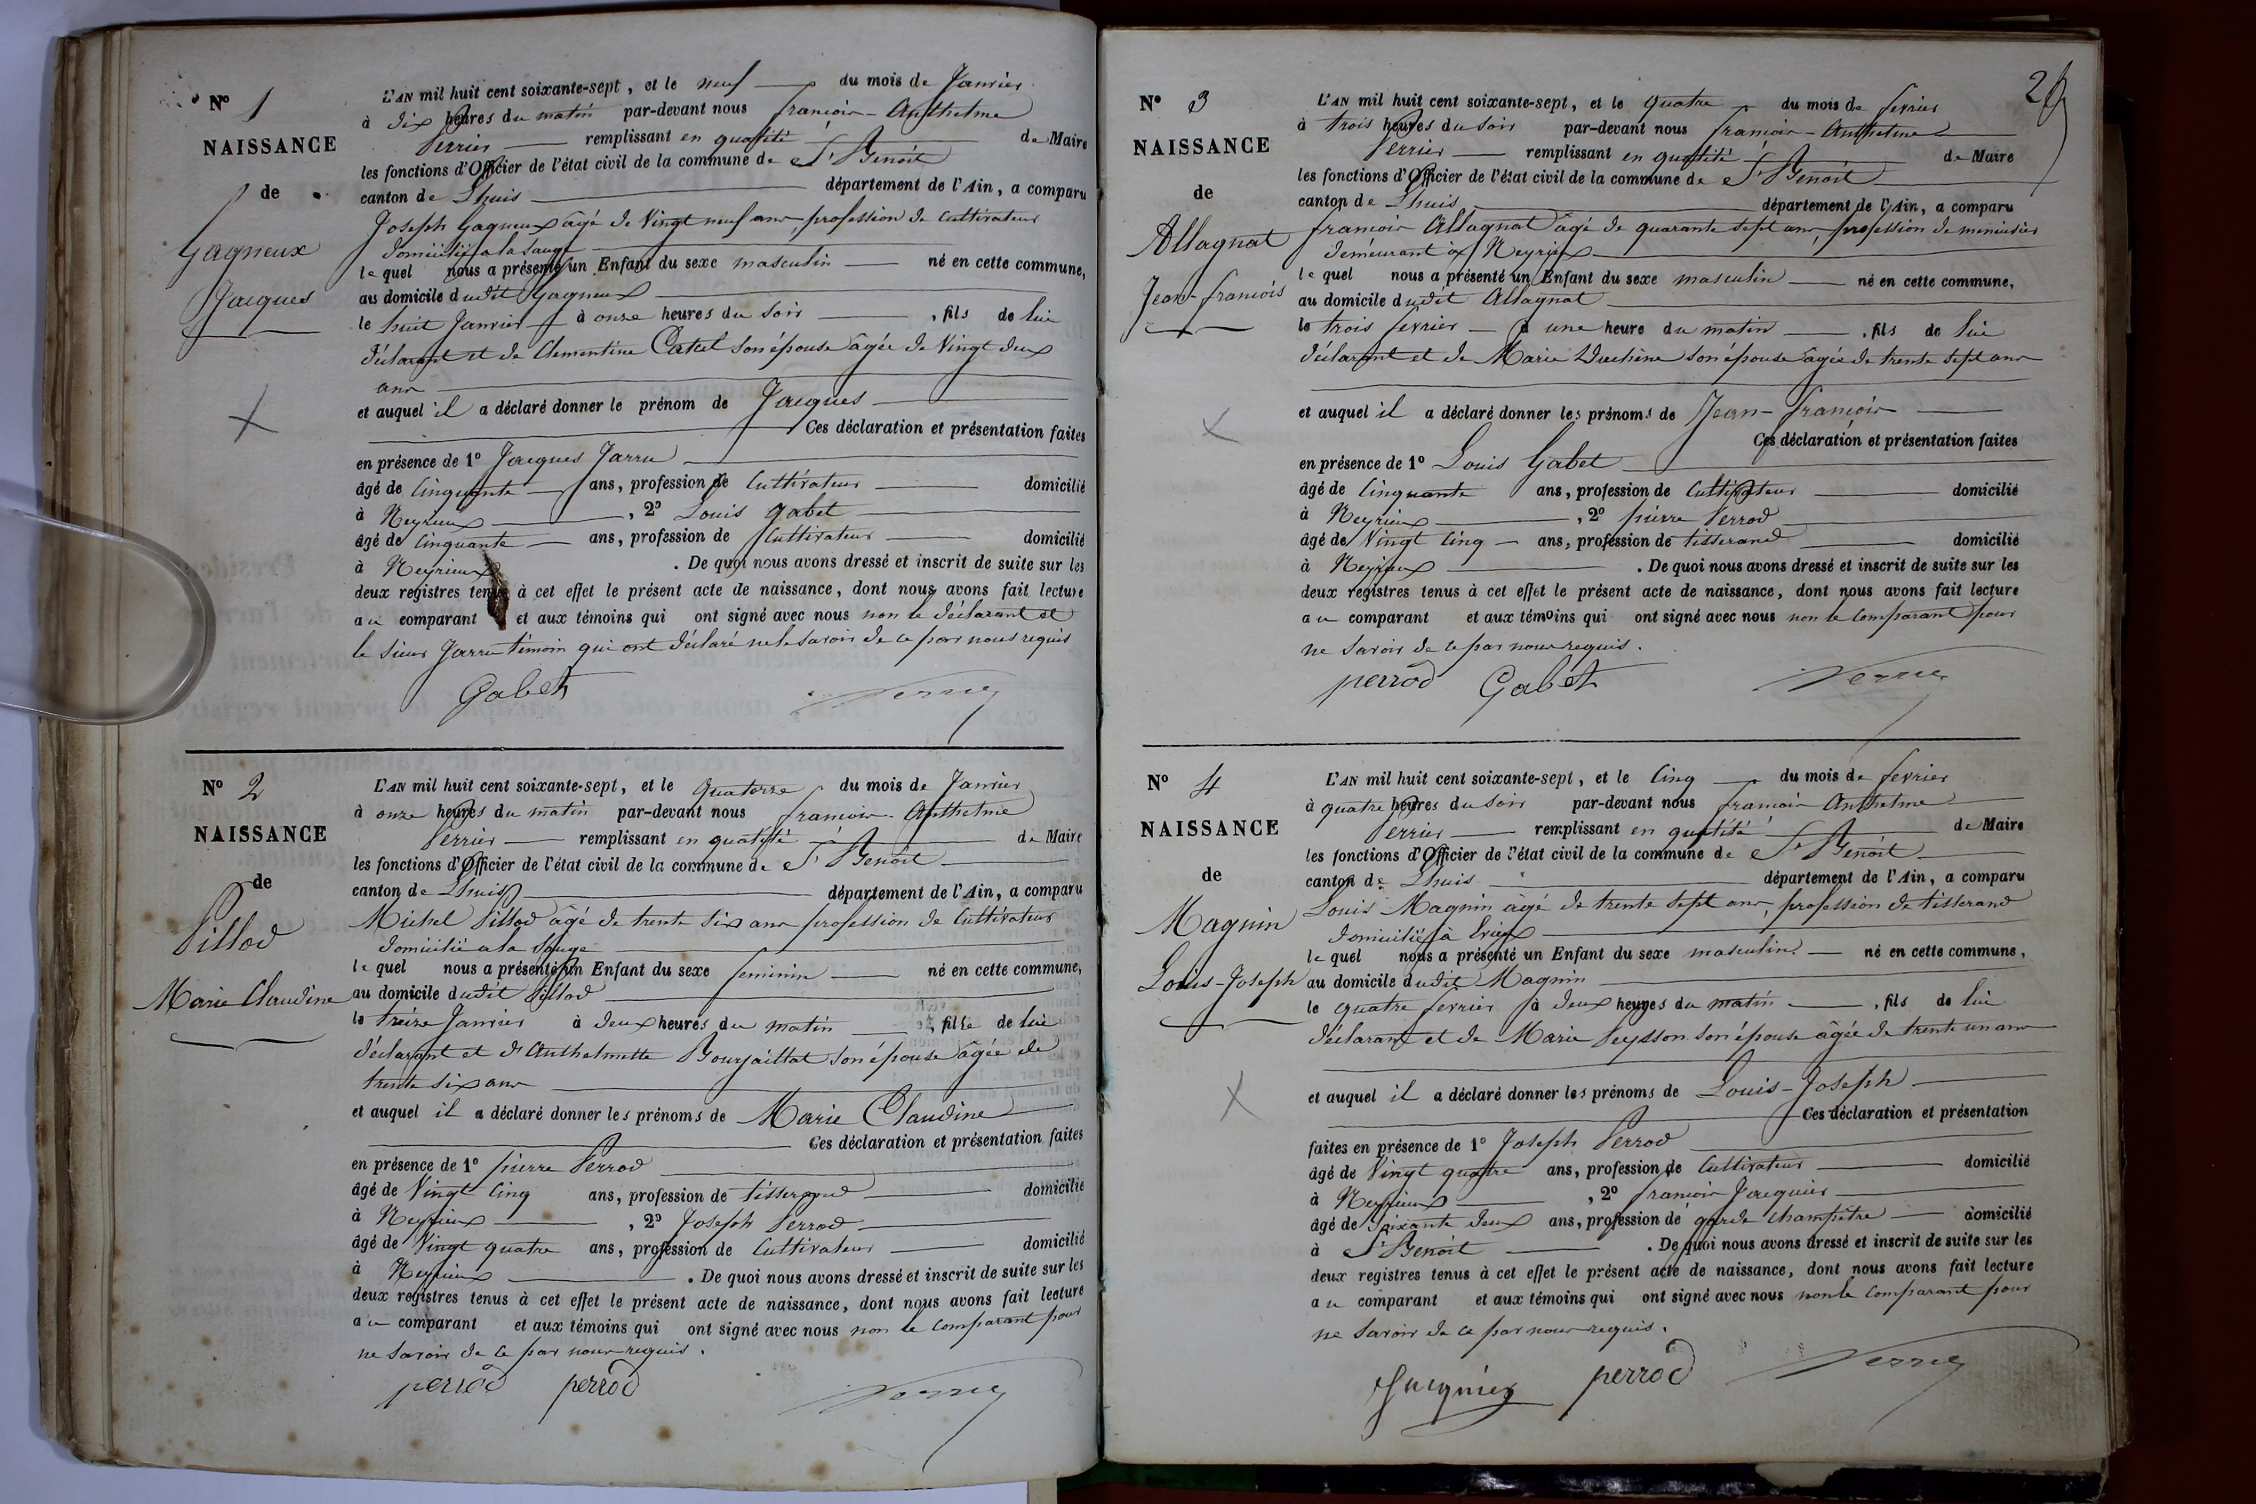 N° 1
NAISSANCE
de
Gagneux
Jacques
L'AN mil huit cent soixante-sept, et le neuf du mois de Janvier
à dix heures du matin par-devant nous françois-Anthelme
Perrier remplissant en qualité de Maire
les fonctions d'Officier de l'état civil de la commune de St Benoit
canton de Lhuis département de l'Ain, a comparu
Joseph Gagneux âgé de Vingt neuf ans, profession de Cultivateur
domicilié a la Sauge
lequel nous a présenté un Enfant du sexe masculin né en cette commune,
au domicile dudit Gagneux
le huit Janvier à onze heures du soir, fils de lui
déclarant et de Clementine son épouse âgée de Vingt deux
ans
et auquel il a déclaré donner le prénom de Jacques
Ces déclaration et présentation faites
en présence de 1° Jacques Jarru
âgé de Cinquante ans, profession de Cultivateur domicilié
à Neyrieux, 2° Louis Gabet
âgé de Cinquante ans, profession de Cultivateur domicilié
à Neyrieux. De quoi nous avons dressé et inscrit de suite sur les
deux registres tenus à cet effet le présent acte de naissance, dont nous avons fait lecture
au comparant et aux témoins qui ont signé avec nous non le déclarant et
le sieur Jarru témoin qui ont déclaré ne le savoir de ce par nous requis
Gabet Perrier
N° 2
NAISSANCE
de
Pillod
Marie Claudine
L'AN mil huit cent soixante-sept, et le Quatorze du mois de Janvier
à onze heures du matin par-devant nous françois-Anthelme
Perrier remplissant en qualité de Maire
les fonctions d'Officier de l'état civil de la commune de St Benoit
canton de Lhuis département de l'Ain, a comparu
Michel Pillod âgé de trente six ans profession de Cultivateur
domicilié a la Sauge
lequel nous a présenté un Enfant du sexe feminin né en cette commune,
au domicile dudit Pillod
le treize Janvier à deux heures du matin, fille de lui
déclarant et d'Anthelmette Bourjaillat son épouse âgée de
trente six ans
et auquel il a déclaré donner les prénoms de Marie Claudine
Ces déclaration et présentation faites
en présence de 1° pierre Perrod
âgé de Vingt Cinq ans, profession de tisserand domicilié
à Neyrieux, 2° Joseph Perrod
âgé de Vingt quatre ans, profession de Cultivateur domicilié
à Neyrieux. De quoi nous avons dressé et inscrit de suite sur les
deux registres tenus à cet effet le présent acte de naissance, dont nous avons fait lecture
au comparant et aux témoins qui ont signé avec nous non le Comparant pour
ne savoir de ce par nous requis.
perrod perrod Perrier
N° 3
NAISSANCE
de
Allagnat
Jean-françois
L'AN mil huit cent soixante-sept, et le quatre du mois de fevrier
à trois heures du soir par-devant nous françois-Anthelme
Perrier remplissant en qualité de Maire
les fonctions d'Officier de l'état civil de la commune de St Benoit
canton de Lhuis département de l'Ain, a comparu
françois Allagnat âgé de quarante sept ans, profession de menuisier
demeurant à Neyrieux
lequel nous a présenté un Enfant du sexe masculin né en cette commune,
au domicile dudit Allagnat
le trois fevrier à une heure du matin, fils de lui
déclarant et de Marie Duchêne son épouse âgée de trente sept ans
et auquel il a déclaré donner les prénoms de Jean-françois
Ces déclaration et présentation faites
en présence de 1° Louis Gabet
âgé de Cinquante ans, profession de Cultivateur domicilié
à Neyrieux, 2° pierre Perrod
âgé de Vingt Cinq ans, profession de tisserand domicilié
à Neyrieux. De quoi nous avons dressé et inscrit de suite sur les
deux registres tenus à cet effet le présent acte de naissance, dont nous avons fait lecture
au comparant et aux témoins qui ont signé avec nous non le Comparant pour
ne savoir de ce par nous requis.
perrod Gabet Perrier
N° 4
NAISSANCE
de
Magnin
Louis-Joseph
L'AN mil huit cent soixante-sept, et le Cinq du mois de fevrier
à quatre heures du soir par-devant nous françois Anthelme
Perrier remplissant en qualité de Maire
les fonctions d'Officier de l'état civil de la commune de St Benoit
canton de Lhuis département de l'Ain, a comparu
Louis Magnin âgé de trente sept ans, profession de tisserand
domicilié à
lequel nous a présenté un Enfant du sexe masculin né en cette commune,
au domicile dudit Magnin
le quatre fevrier à deux heures du matin, fils de lui
déclarant et de Marie Peysson son épouse âgée de trente un ans
et auquel il a déclaré donner les prénoms de Louis-Joseph
Ces déclaration et présentation
faites en présence de 1° Joseph Perrod
âgé de Vingt quatre ans, profession de Cultivateur domicilié
à Neyrieux, 2° françois Jacquier
âgé de soixante deux ans, profession de garde champêtre domicilié
à St Benoit. De quoi nous avons dressé et inscrit de suite sur les
deux registres tenus à cet effet le présent acte de naissance, dont nous avons fait lecture
au comparant et aux témoins qui ont signé avec nous non le Comparant pour
ne savoir de ce par nous requis.
Jacquier perrod Perrier